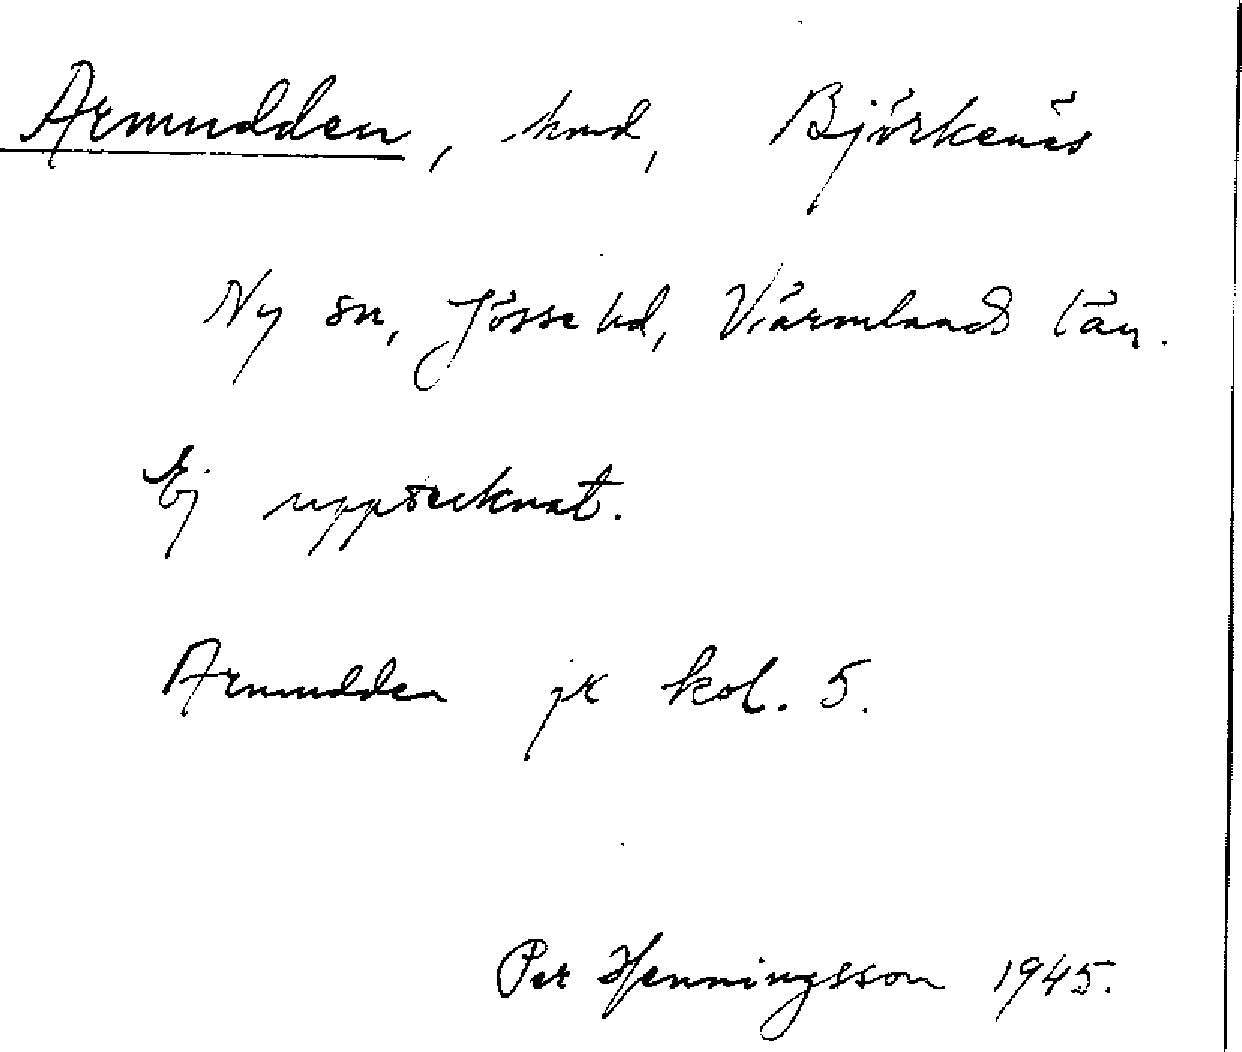 Armudden, hmd, Björkenäs
Ny sn, Jösse hd, Värmlands län.
Ej upptecknat.
Armudden jk kol. 5.
Per Henningsson 1945.